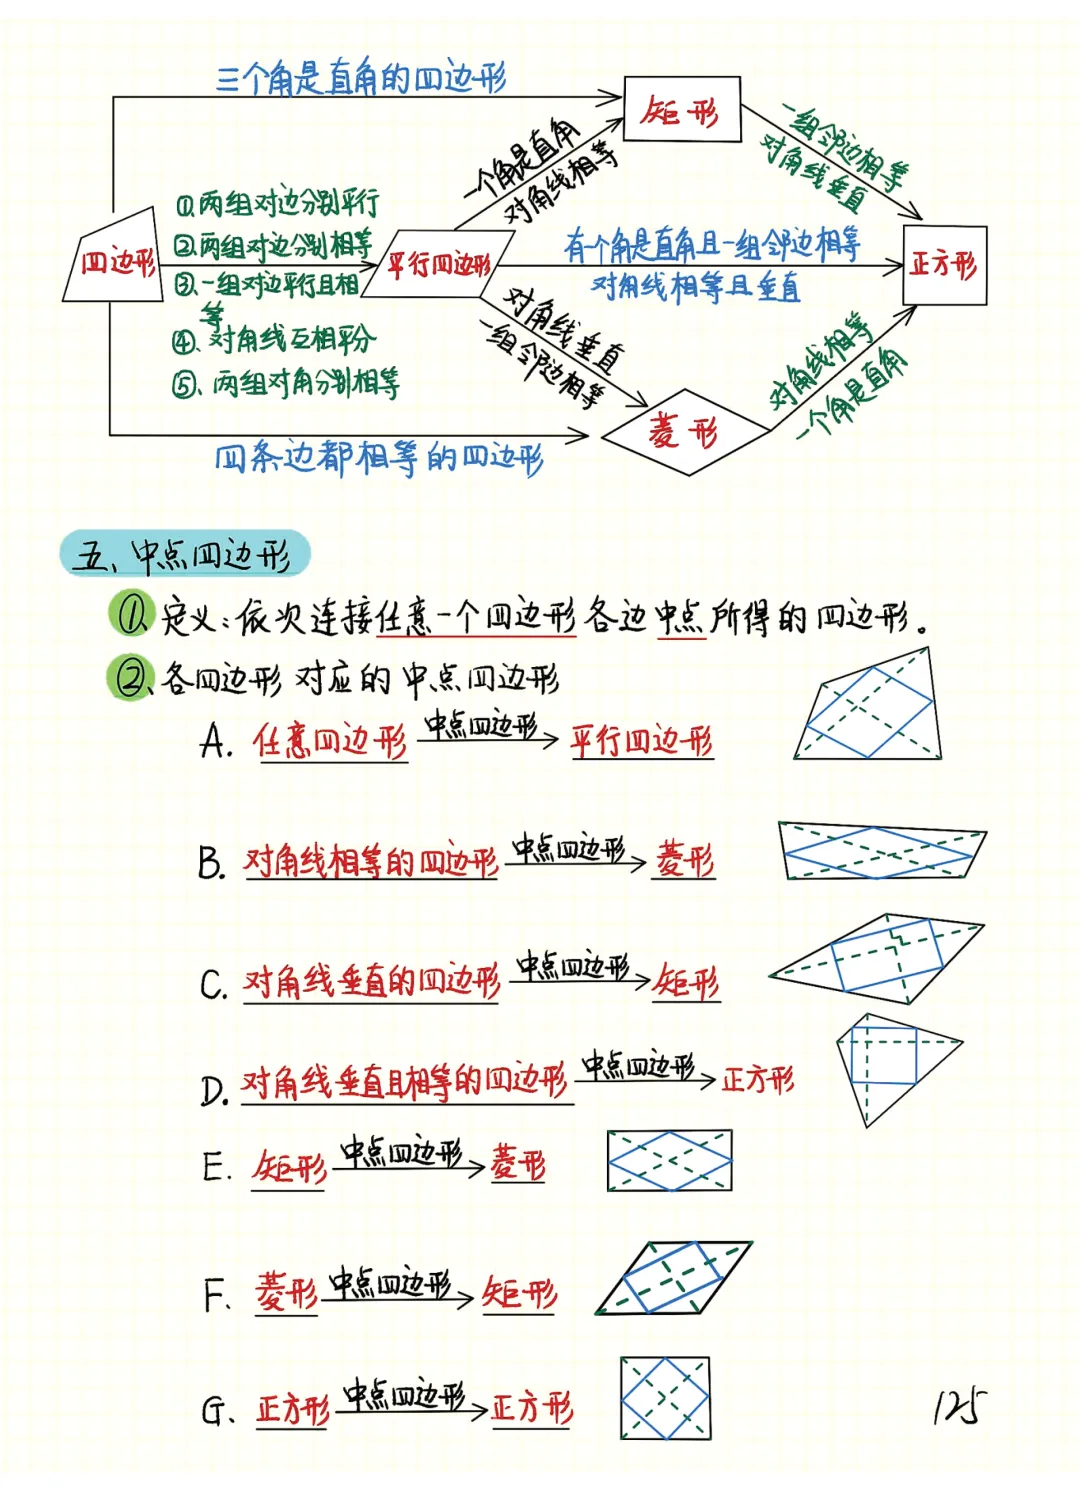 三个角是直角的四边形
矩形
一个角是直角
对角线相等
一组邻边相等
对角线垂直
①.两组对边分别平行
②.两组对边分别相等
③.一组对边平行且相
等
④、对角线互相平分
⑤、两组对角分别相等
四边形
平行四边形
有一个角是直角且一组邻边相等
对角线相等且垂直
正方形
对角线垂直
一组邻边相等
对角线相等
一个角是直角
菱形
四条边都相等的四边形
五、中点四边形
①、定义:依次连接任意一个四边形各边中点所得的四边形。
②、各四边形对应的中点四边形
A. 任意四边形 中点四边形 平行四边形
B. 对角线相等的四边形 中点四边形 菱形
C. 对角线垂直的四边形 中点四边形 矩形
D. 对角线垂直且相等的四边形 中点四边形 正方形
E. 矩形 中点四边形 菱形
F、 菱形 中点四边形 矩形
G、 正方形 中点四边形 正方形
125